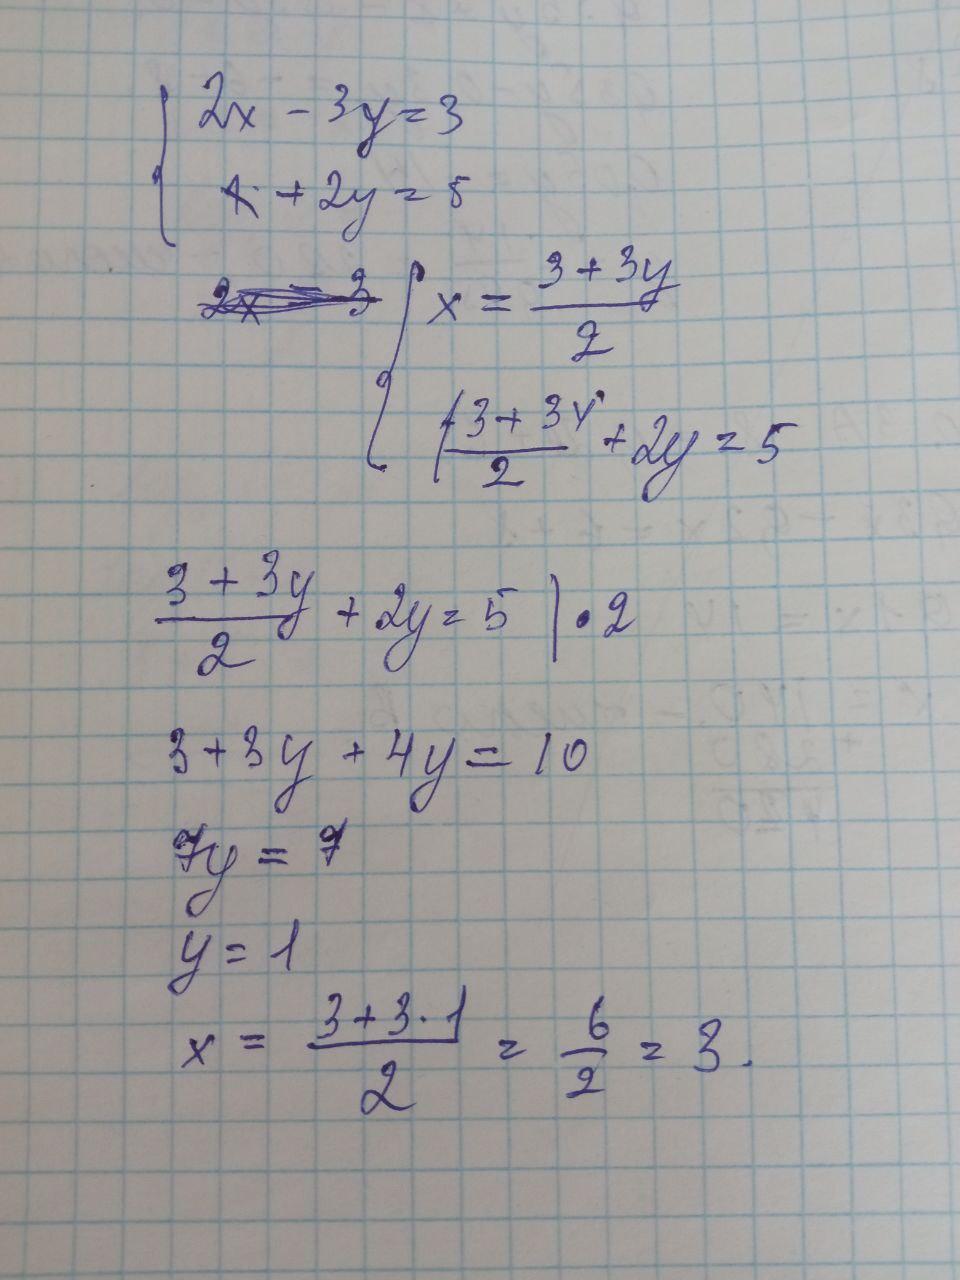 2x - 3y = 3
x + 2y = 5
x = (3 + 3y)/2
(3 + 3y)/2 + 2y = 5
(3 + 3y)/2 + 2y = 5 | • 2
3 + 3y + 4y = 10
7y = 7
y = 1
x = (3 + 3 · 1)/2 = 6/2 = 3.